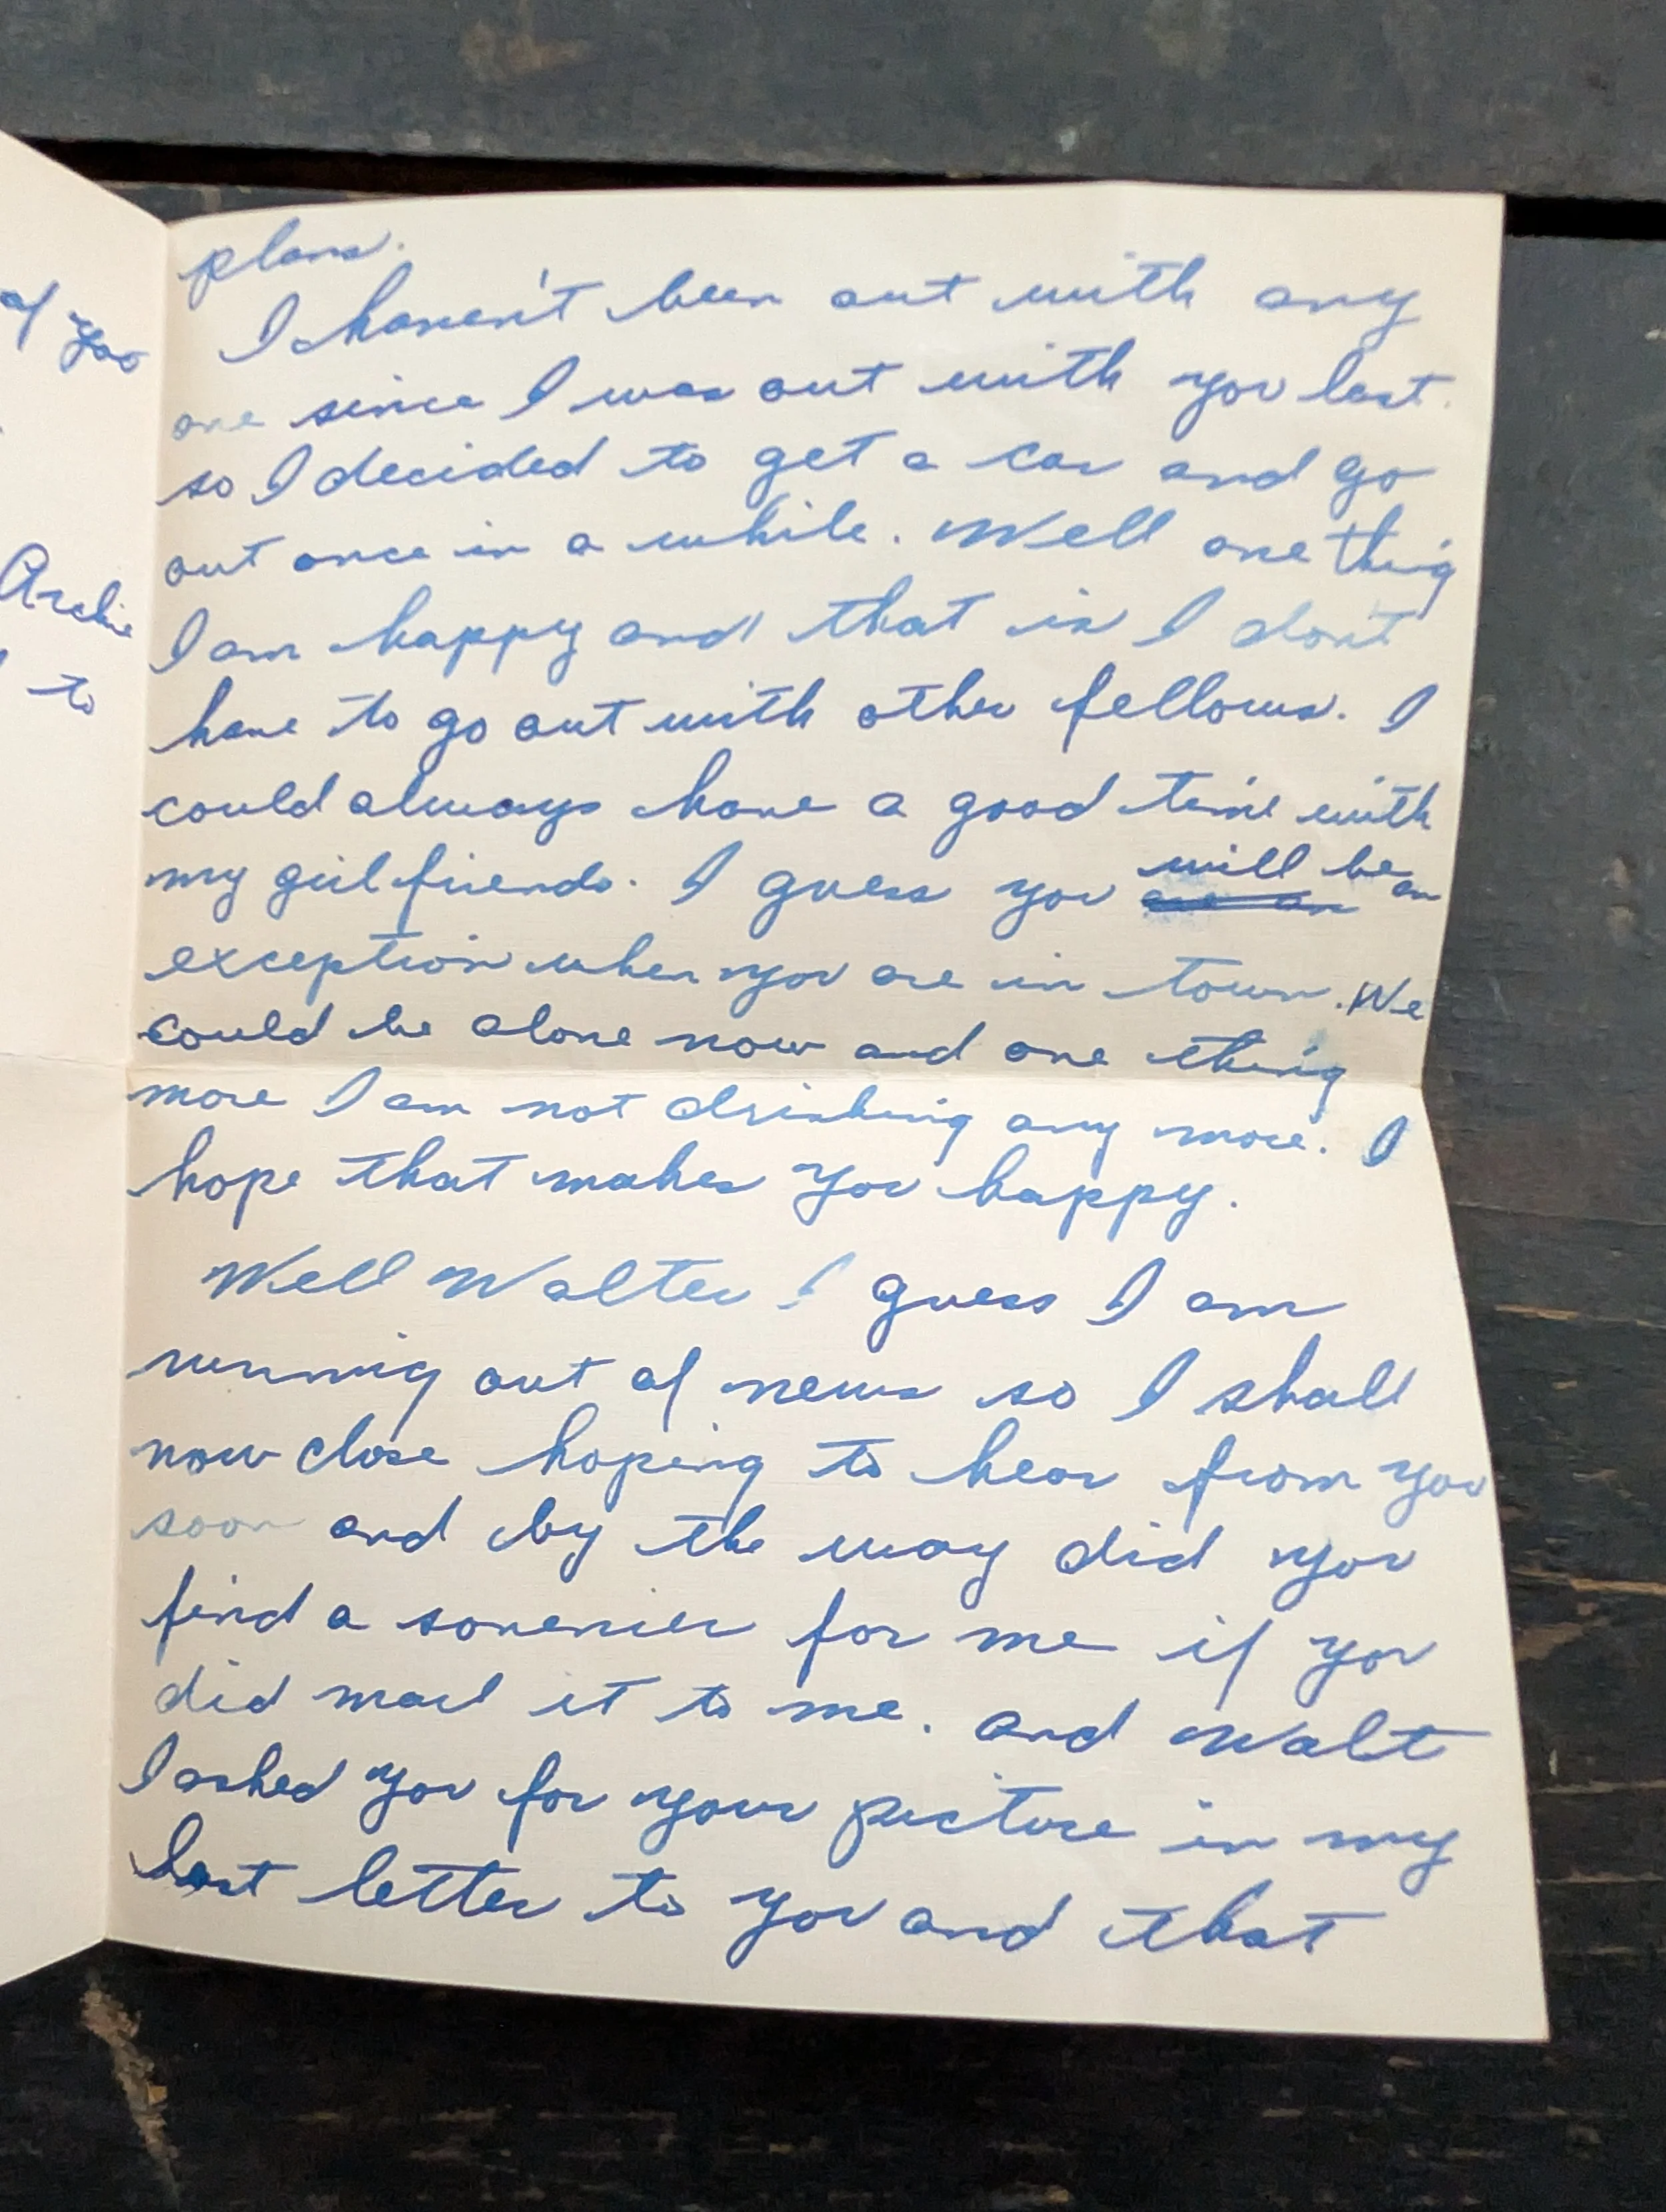 of you
Archie
to
plans.
I haven't been out with any
one since I was out with you last.
so I decided to get a car and go
out once in a while. Well one thing
I am happy and that is I don't
have to go out with other fellows. I
could always have a good time with
my girl friends. I guess you will be an
exception when you are in town. We
could be alone now and one thing
more I am not drinking any more. I
hope that makes you happy.
Well Walter I guess I am
running out of news so I shall
now close hoping to hear from you
soon and by the way did you
find a sovenier for me if you
did mail it to me. and Walt
I asked you for your picture in my
last letter to you and that